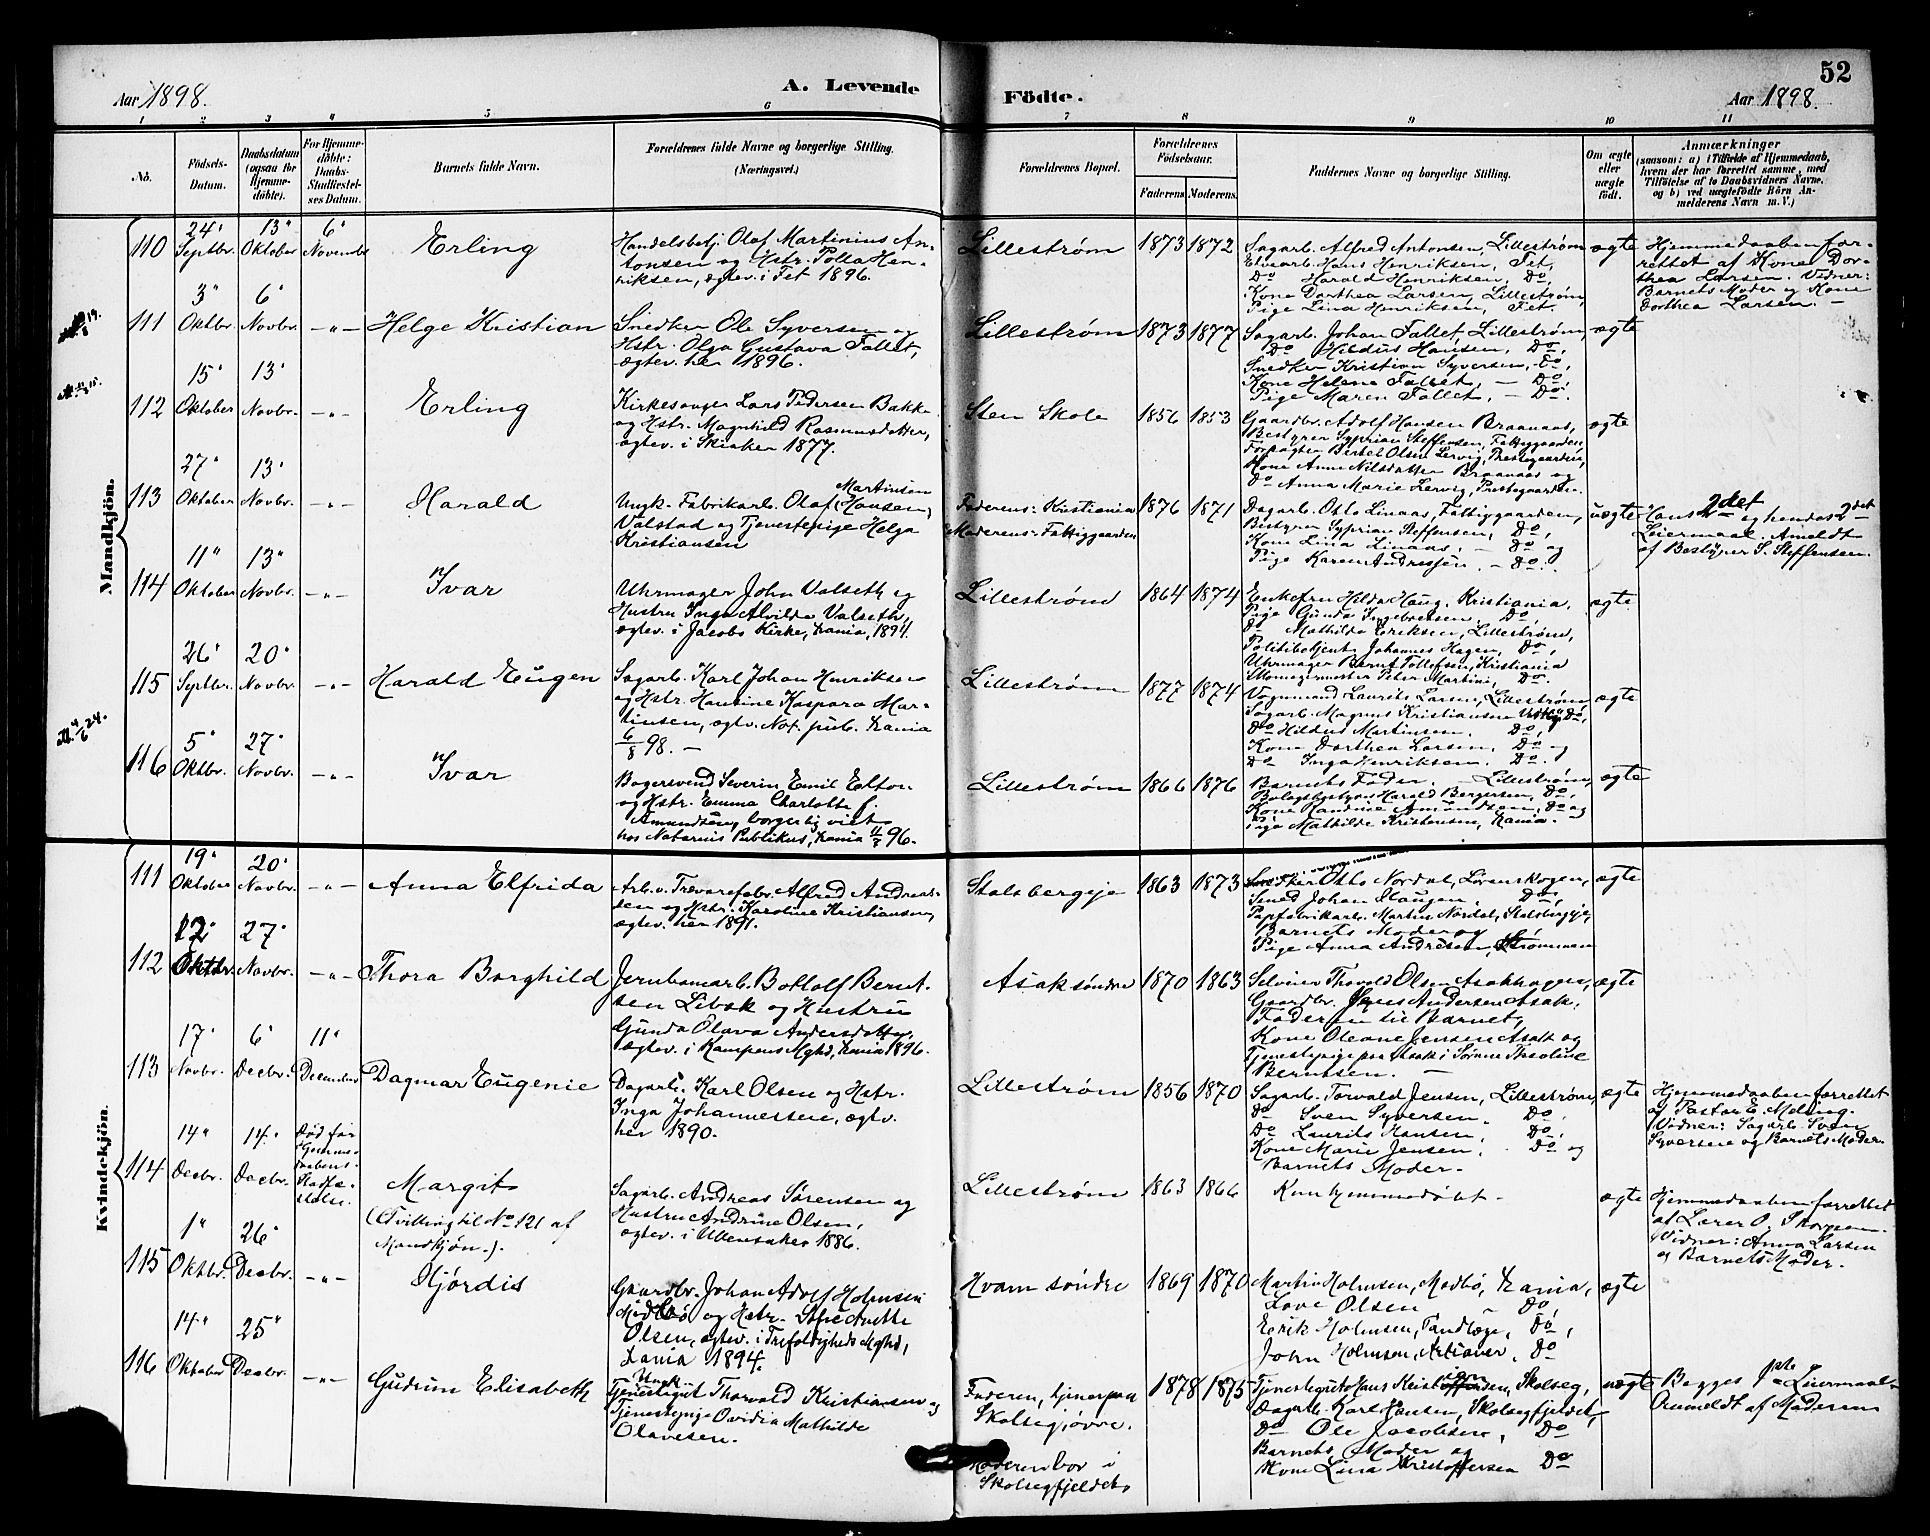 Aar 1898.
A. Levende
Födte.
Aar 1898.
52
1 2 3 4 5 6 7 8 9 10 11
No.
Födsels-
Datum.
Daabsdatum
(ogsaa for
Hjemme-
döbte).
For Hjemme-
döbte:
Daabs-
Stadfæstel-
ses Datum.
Barnets fulde Navn.
Forældrenes fulde Navne og borgerlige Stilling.
(Næringsvei.)
Forældrenes Bopæl.
Forældrenes
Födselsaar.
Faderens. Moderens.
Faddernes Navne og borgerlige Stilling.
Om ægte
eller
uægte
födt.
Anmærkninger
(saasom: a) i Tilfælde af Hjemmedaab,
hvem der har forrettet samme, med
Tilföielse af to Daabsvidners Navne,
og b) ved uægtefödte Börn An-
melderens Navn m. V.)
Mandkjön.
110
24'
Septbr.
13'
Oktober
6'
Novembr
Erling
Handelsbetj. Olaf Martinius An-
tonsen og Hstr. Polla Hen-
riksen, ægtev. i Fet 1896.
Lillestrøm
1873 1872
Sagarb. Alfred Antonsen, Lillestrøm
Elvearb. Hans Henriksen, Fet,
Do Harald Henriksen, Do,
Kone Dorthea Larsen, Lillestrøm,
Pige Lina Henriksen, Fet.
ægte
Hjemmedaaben for-
rettet af Kone Dor-
thea Larsen. Vidner:
Barnets Moder og Kone
Dorthea Larsen. -
111
3"
Oktbr.
6'
Novbr.
- " -
Helge Kristian
Snedker Ole Syversen og
Hstr. Olga Gustava Fallet,
ægtev. her 1896.
Lillestrøm
1873 1877
Sagarb. Johan Fallet, Lillestrøm,
Do Hildus Hansen, Do,
Snedker Kristian Syversen, Do,
Kone Helene Fallet, - Do,
Pige Maren Fallet, - Do.
ægte
112
15'
Oktober
13'
Novbr.
- " -
Erling
Kirkesanger Lars Pedersen Bakke
og Hstr. Magnhild Rasmusdatter,
ægtev. i Skiaker 1877.
Sten Skole
1856 1853
Gaardbr. Adolf Hansen Braanaas,
Bestyrer Syprian Steffensen, Fattiggaarden,
Forpagter Bertel Olsen Lervig, Prestegaarden,
Kone Anne Nilsdatter Braanaas og
Do Anna Marie Lervig, Prestegaarden.
ægte
113
27'
Oktober
13'
Novbr.
- " -
Harald
Martinsen
Ungk. Fabrikarb. Olaf (Hansen)
Valstad og Tjenestepige Helga
Kristiansen
Faderens: Kristiania
Moderens: Fattiggaarden
1876 1871
Dagarb. Otto Linaas, Fattiggaarden,
Bestyrer Syprian Steffensen, Do,
Kone Lina Linaas, - Do og
Pige Karen Andresen, - Do.
uægte
Hans 2det og hendes 2det
Leiermaal. Anmeldt
af Bestyrer S. Steffensen.
114
11"
Oktober
13"
Novbr.
- " -
Ivar
Uhrmager John Valseth og
Hustru Inga Alvilde Valseth,
ægtev. i Jacobs Kirke, Krania, 1894.
Lillestrøm
1864 1874
Enkefru Hilda Haug, Kristiania,
Pige Gunda Ingebretsen, Do,
Do Mathilde Eriksen, Lillestrøm,
Politibetjent Johannes Hagen, Do,
Uhrmager Bernt Tollefsen, Kristiania
Skomagermester Peter Martini, Do.
ægte
115
26'
Septbr.
20'
Novbr.
- " -
Harald Eugen
Sagarb. Karl Johan Henriksen
og Hstr. Hansine Kaspara Mar-
tinsen, ægtv. Not. pub. Krania
6/8 98. -
Lillestrøm
1877 1874
Vognmand Laurits Larsen, Lillestrøm,
Sagarb. Magnus Kristiansen Do,
Do Hildus Martinsen, Do,
Kone Dorthea Larsen, Do og
Do Inga Henriksen, Do.
ægte
116
5'
Oktbr.
27'
Novbr.
- " -
Ivar
Bagersvend Severin Emil Elton
og Hstr. Emma Charlotte f.
Amundsen, borgerlig viet
hos Notarius Publikus, Krania 96.
Lillestrøm
1866 1876
Barnets Fader, Lillestrøm,
Bolagsbestyrer Harald Bergersen, Do,
Kone Randine Amundsen, Do og
Pige Mathilde Kristensen, Krania.
ægte
Kvindekjön.
111
19'
Oktober
20'
Novbr.
- " -
Anna Elfrida
Arb. v. Trævarefabr. Alfred Andreas-
sen og Hstr. Karoline Kristiansen,
ægtev. her 1891.
Stalsbergeje
1863 1873
Otto Nordal, Lørenskogen,
Smed Johan Haugen, Do,
Papfabrikarb. Martin Nordal, Stalsbergeje,
Barnets Moder og
Pige Anna Andresen, Strømmen
ægte
112
12'
Oktbr.
27'
Novbr.
- " -
Thora Borghild
Jernbanearb. Botlolf Bernt-
sen Libæk og Hustru
Gunda Olava Andersdatter,
ægtev. i Kampens Mghd, Krania 1896.
Asak søndre
1870 1863
Selveier Thorvald Olsen Asakhagen,
Gaardbr. Jens Andersen Asak,
Faderen til Barnet,
Kone Oleane Jensen Asak og
Tjenestepige paa Asak i Sørum Theoline
Berntsen. -
ægte
113
17'
Novbr.
6'
Decbr.
11'
December
Dagmar Eugenie
Dagarb. Karl Olsen og Hstr.
Inga Johannessen, ægtv.
her 1890.
Lillestrøm
1856 1870
Sagarb. Torvald Jensen, Lillestrøm,
Do Sven Syversen, Do,
Do Laurits Hansen, Do,
Kone Marie Jensen, Do og
Barnets Moder.
ægte
Hjemmedaaben forrettet
af Pastor E. Melsing.
Vidner: Sagarb. Sven
Syversen og Barnets Moder.
114
14"
Decbr.
14"
Decbr.
Død før
Hjemme-
daabens
Stadfæ-
stelse.
Margit
(Tvilling til No 121 af
Mandkjøn.).
Sagarb. Andreas Sørensen og
Hustru Andrine Olsen,
ægtev. i Ullensaker 1886.
Lillestrøm
1863 1866
Kun hjemmedøbt -
ægte
Hjemmedaaben forrettet
af Lærer O.
Vidner: Anna Larsen
og Barnets Moder.
115
1"
Oktbr.
26'
Decbr.
- " -
Hjørdis
Gaardbr. Johan Adolf Holmsen
Midbø og Hstr. Sofie Anette
Olsen, ægtev. i Trefoldigheds Mghd,
Krania 1894.
Hvam søndre
1869 1870
Martin Holmsen, Krania,
Olsen " Do,
Eerik Holmsen, Tandlæge, Do,
John Holmsen, Do
ægte
116
14"
Oktober
25"
Decbr.
- " -
Gudrun Elisabeth
Ungk.
Tjenestegut Thorvald Kristiansen og
Tjenestepige Ovidia Mathilde
Olavesen.
Faderen, tjener paa
Skolsegjøvre.
Moderen bor i
Skolsegfjeldet,
1878 1875
Tjenestegut Hans Kristiansen, Skolseg,
Dagarb. Karl Hansen, Skolsegfjeldet,
Do Ole Jacobsen, Do
Barnets Moder og
Kone Lina Kristoffersen Do
uægte
Begges 1ste Leiermaal.
Anmeldt af Moderen